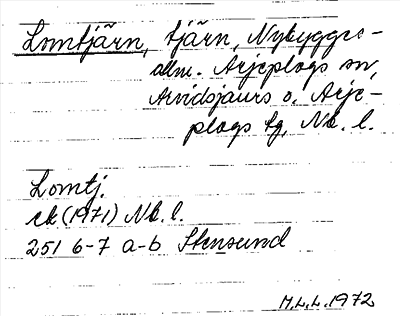 Lomtjärn, tjärn, Nybygges-
allm. Arjeplogs sn,
Arvidsjaurs o. Arje-
plogs tg, Nb. l.
Lomtj.
ek (1971) Nb. l.
251 6-7 a-b Stensund
M.L.L. 1972